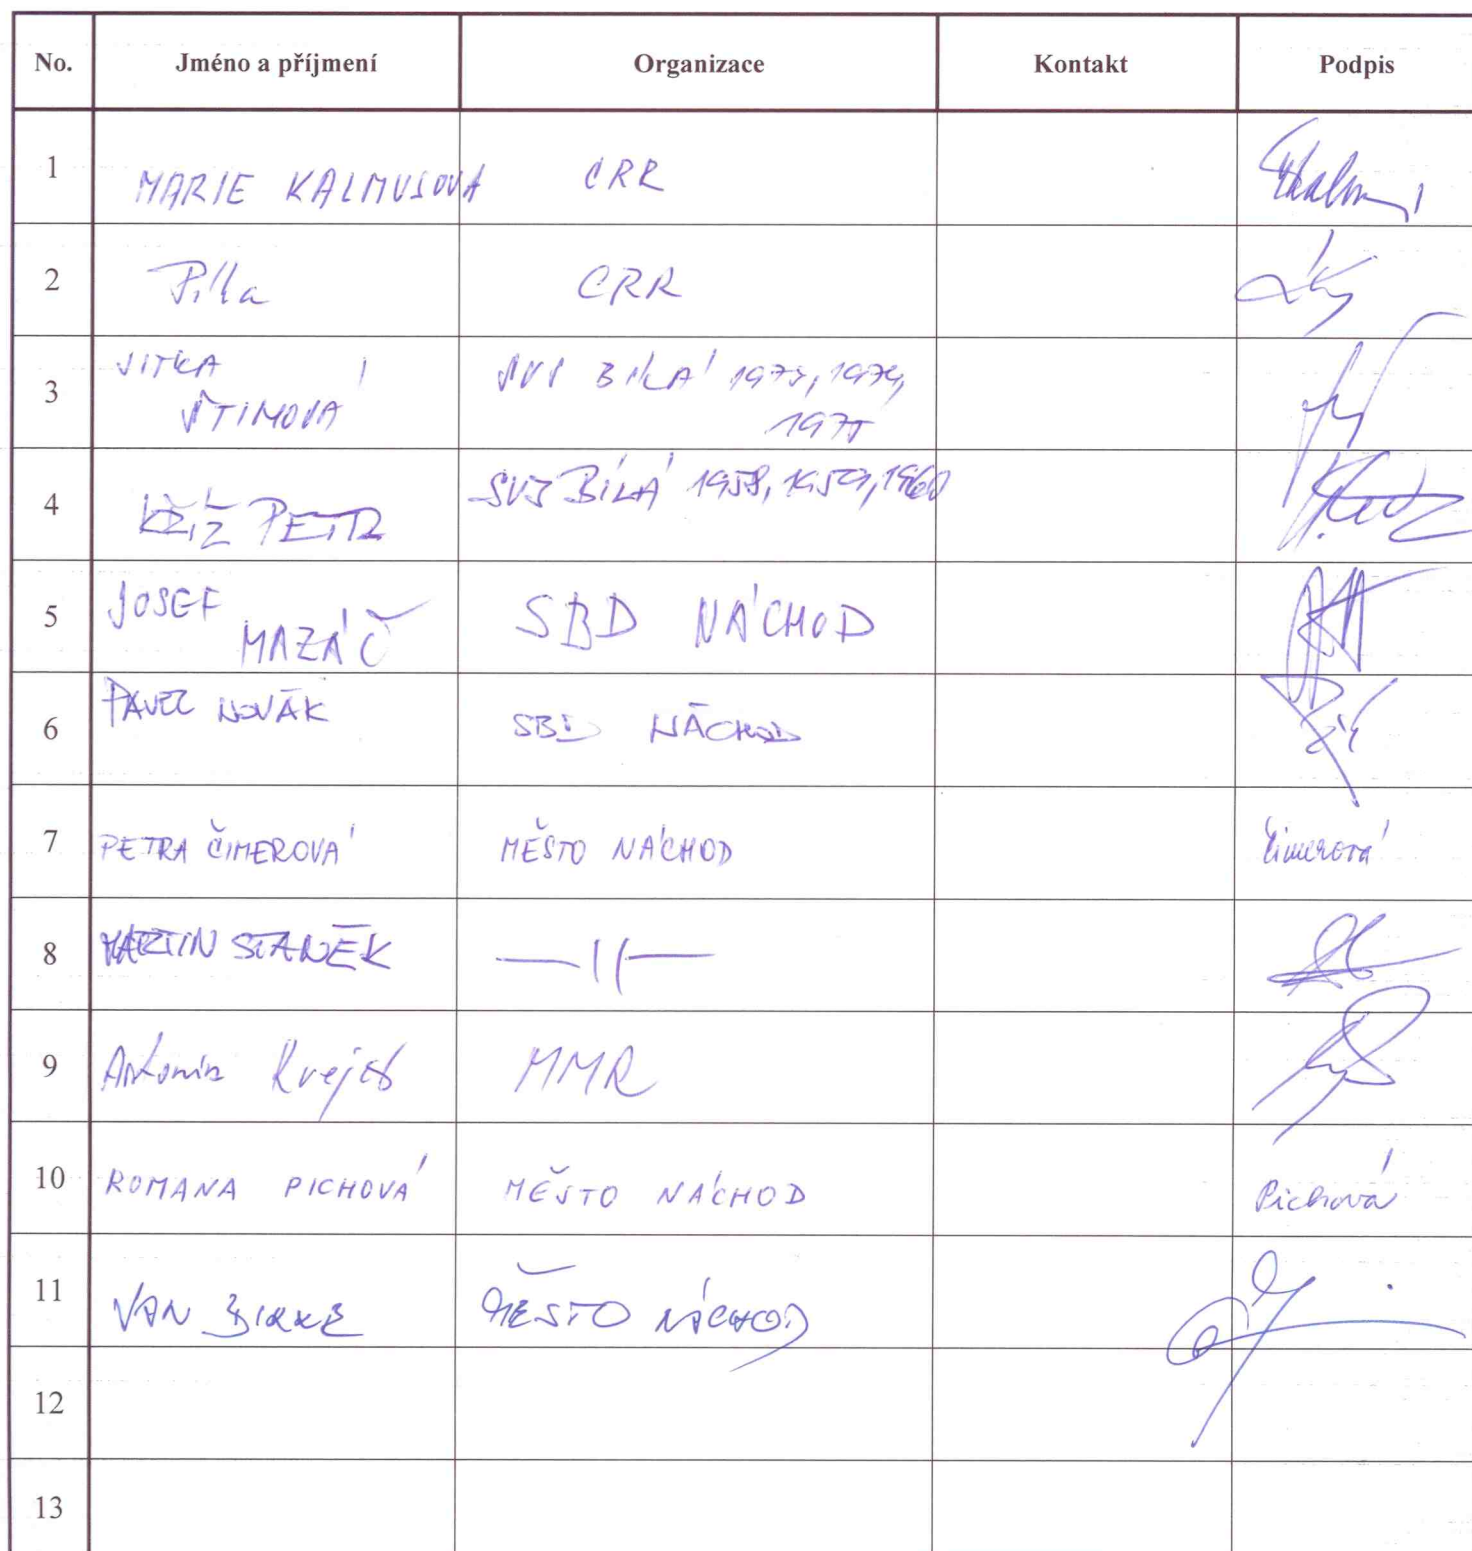 No. Jméno a příjmení Organizace Kontakt Podpis
1 MARIE KALMUSOVA CRR
2 Píla CRR
3 JITKA
ŠTIMOVÁ
SVJ BÍLÁ 1973, 1974,
1975
4 KŘÍŽ PETR SVJ BÍLÁ 1958, 1959, 1960
5 JOSEF
MAZÁČ
SBD NÁCHOD
6 PAVEL NOVÁK SBD NÁCHOD
7 PETRA ČIMEROVÁ MĚSTO NÁCHOD Čimerová
8 MARTIN STANĚK —||—
9 Antonín MMR
10 ROMANA PICHOVÁ MĚSTO NÁCHOD Pichová
11 JAN BIRKE MĚSTO NÁCHOD
12
13